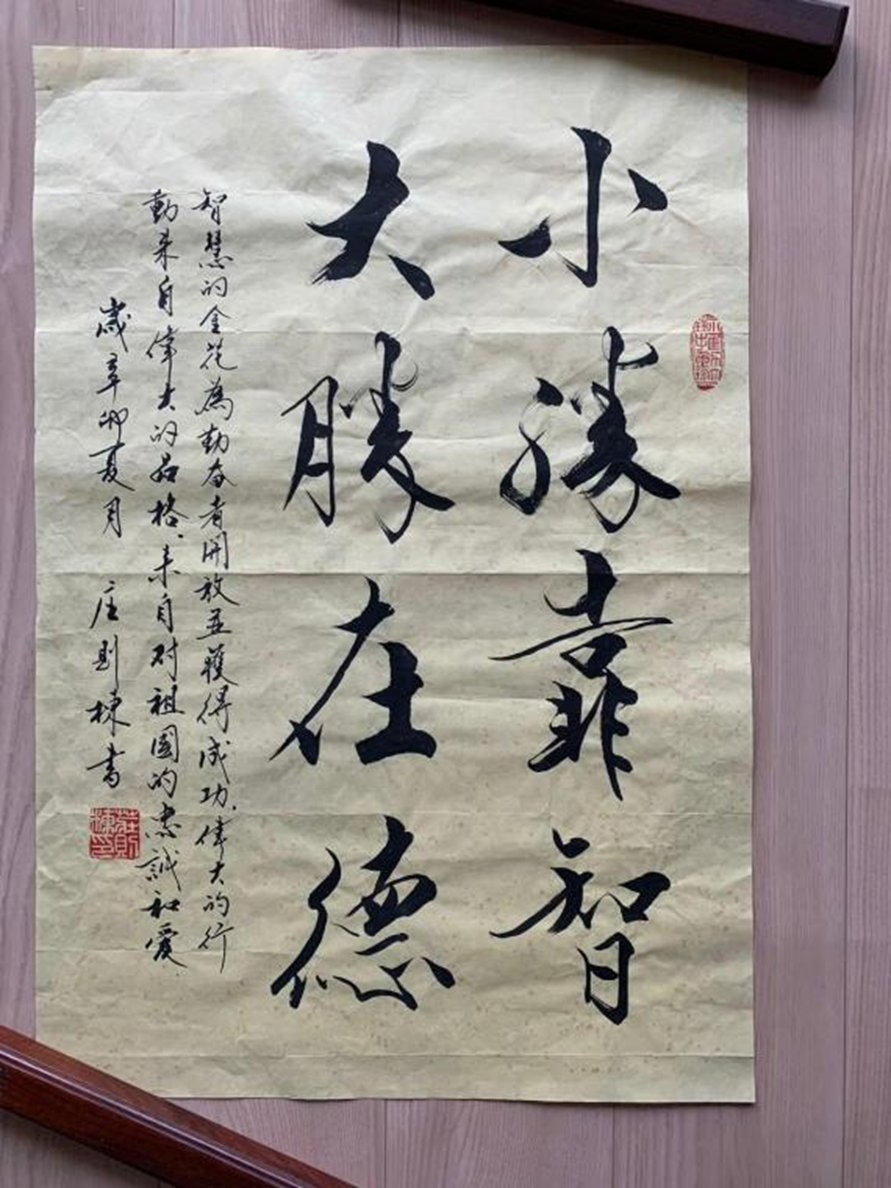 小勝靠智
大勝在德
智慧的金花為勤奋者開放並獲得成功、偉大的行
動来自偉大的品格、来自对祖國的忠誠和愛
歲辛卯夏月 庄則棟書
莊則棟印